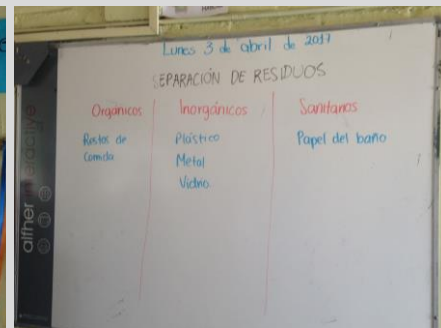 Lunes 3 de abril de 2017
SEPARACIÓN DE RESIDUOS
Orgánicos Inorgánicos Sanitarios
Restos de Comida
Plástico
Metal
Vidrio
Papel del baño
alfher interactive